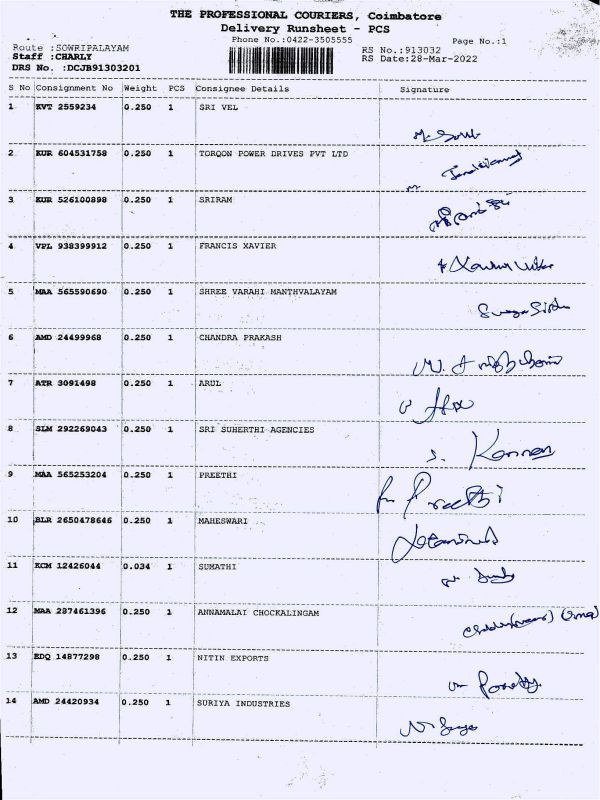 THE PROFESSIONAL COURIERS, Coimbatore
Delivery Runsheet - PCS
Phone No.:0422-3505555 Page No.:1
Route :SOWRIPALAYAM RS No.:913032
Staff :CHARLY RS Date:28-Mar-2022
DRS No. :DCJB91303201
S No Consignment No Weight PCS Consignee Details Signature
1 KVT 2559234 0.250 1 SRI VEL
2 KUR 604531758 0.250 1 TORQON POWER DRIVES PVT LTD
3 KUR 526100898 0.250 1 SRIRAM
4 VPL 938399912 0.250 1 FRANCIS XAVIER
5 MAA 565590690 0.250 1 SHREE VARAHI MANTHVALAYAM
6 AMD 24499968 0.250 1 CHANDRA PRAKASH
7 ATR 3091498 0.250 1 ARUL
8 SLM 292269043 0.250 1 SRI SUHERTHI AGENCIES S. Kannan
9 MAA 565253204 0.250 1 PREETHI Preethi
10 BLR 2650478646 0.250 1 MAHESWARI
11 KCM 12426044 0.034 1 SUMATHI
12 MAA 287461396 0.250 1 ANNAMALAI CHOCKALINGAM
13 EDQ 14877298 0.250 1 NITIN EXPORTS
14 AMD 24420934 0.250 1 SURIYA INDUSTRIES